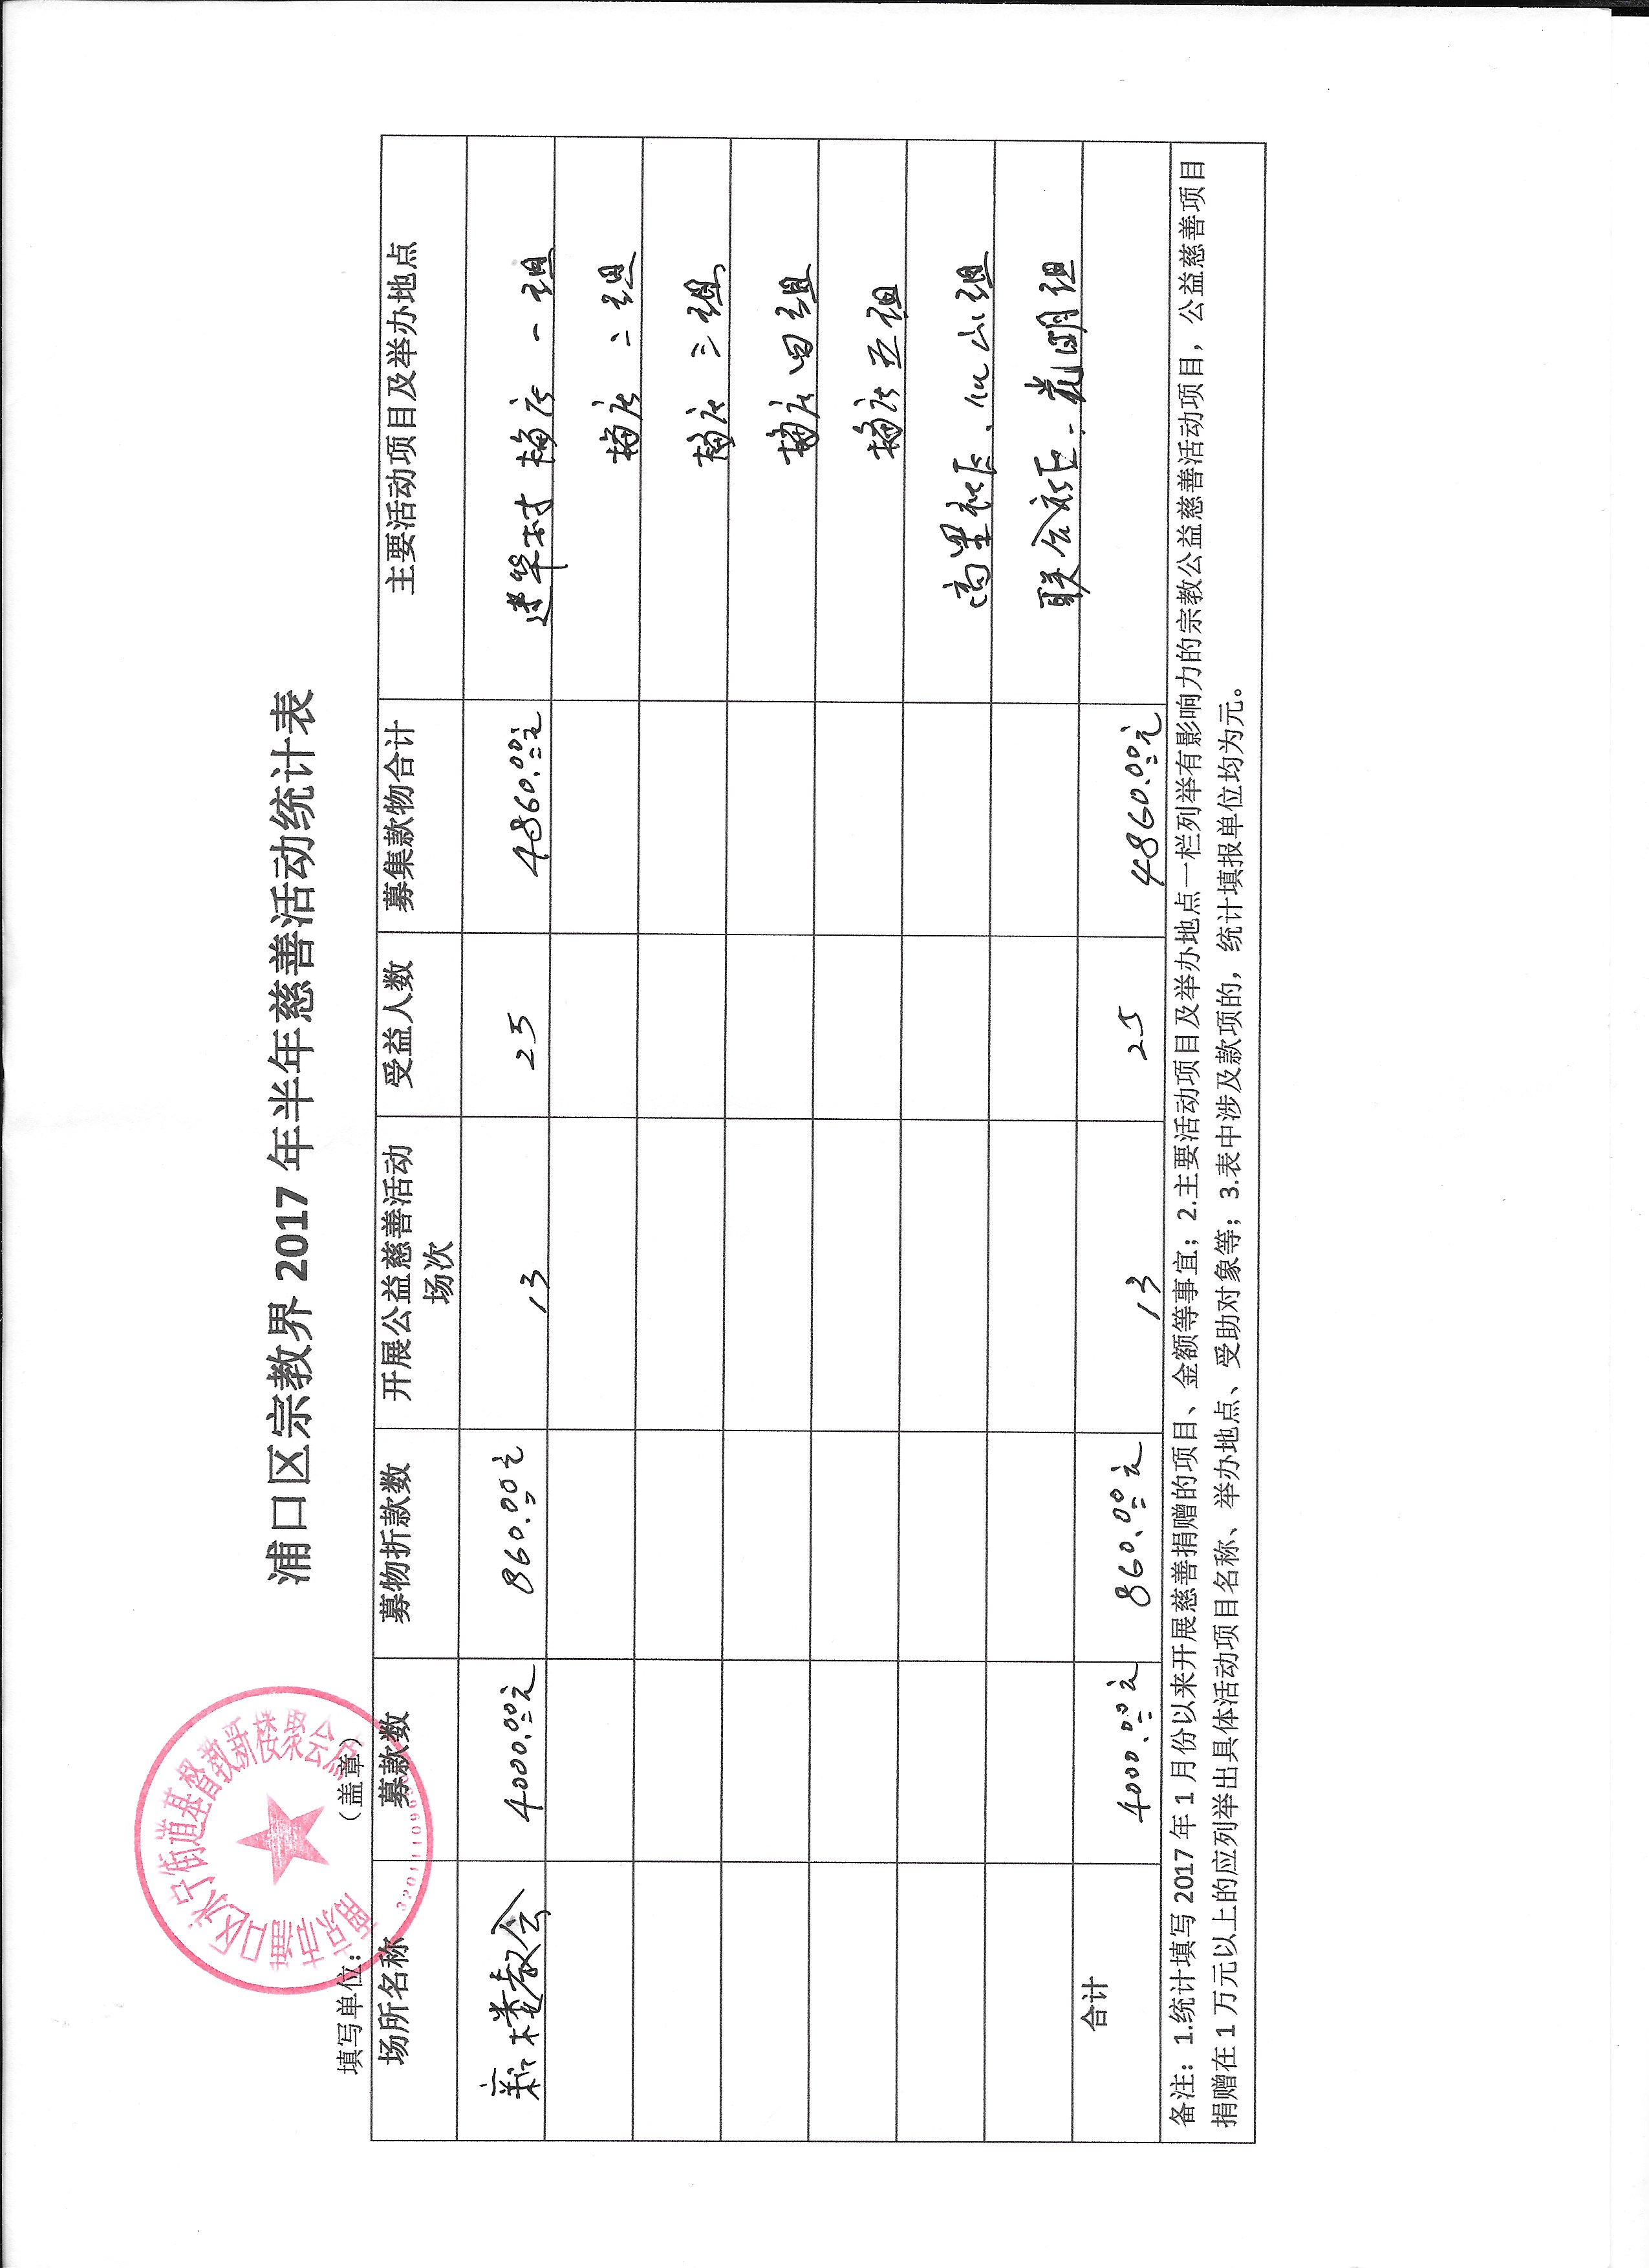 南京市浦口区永宁街道基督教新楼聚会点
浦口区宗教界 2017 年半年慈善活动统计表
填写单位： （盖章）
场所名称 募款数 募物折款数 开展公益慈善活动 受益人数 募集款物合计 主要活动项目及举办地点
场次
新楼教会 4000.00元 860.00元 13 25 4860.00元 建华村 梅庄 一组
梅庄 二组
梅庄 三组
梅庄 四组
梅庄 五组
高里社区、仙山组
联合社区、光明组
合计
4000.00元 860.00元 13 25 4860.00元
备注：1.统计填写 2017 年 1 月份以来开展慈善捐赠的项目、金额等事宜；2.主要活动项目及举办地点一栏列举有影响力的宗教公益慈善活动项目，公益慈善项目
捐赠在 1 万元以上的应列举出具体活动项目名称、举办地点、受助对象等；3.表中涉及款项的，统计填报单位均为元。